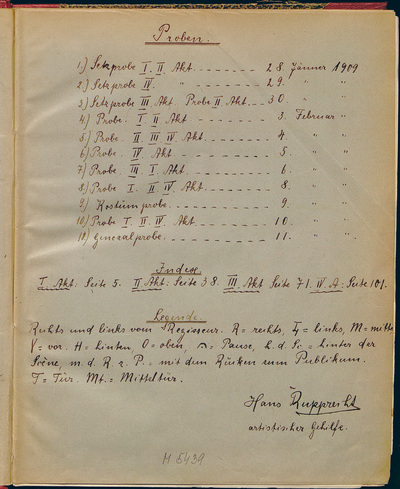 Proben.
1.) Setzprobe I. II. Akt. 28. Jänner 1909
2.) Setzprobe IV. " 29. " "
3.) Setzprobe III Akt. Probe II Akt. 30. " "
4.) Probe I II Akt 3. Februar "
5.) Probe II. III IV Akt. 4. " "
6.) Probe IV. Akt 5. " "
7.) Probe III. I. Akt. 6. " "
8.) Probe I. II IV Akt. 8. " "
9.) Kostümprobe. 9. " "
10.) Probe I II. IV. Akt. 10. " "
11.) Generalprobe. 11. " "
Index.
I. Akt: Seite 5. II. Akt: Seite 38. III. Akt Seite 71. IV. A: Seite 101.
Legende.
Rechts und links vom Regisseur. R = rechts, L = links, M = mitte
V = vor. H = hinten, O = oben, = Pause, h. d. Sc. = hinter der
Scène, m. d. R. z. P. = mit dem Rücken zum Publikum.
T = Tür. Mt. = Mitteltür.
Hans Rupprecht
artistischer Gehilfe.
M 5439